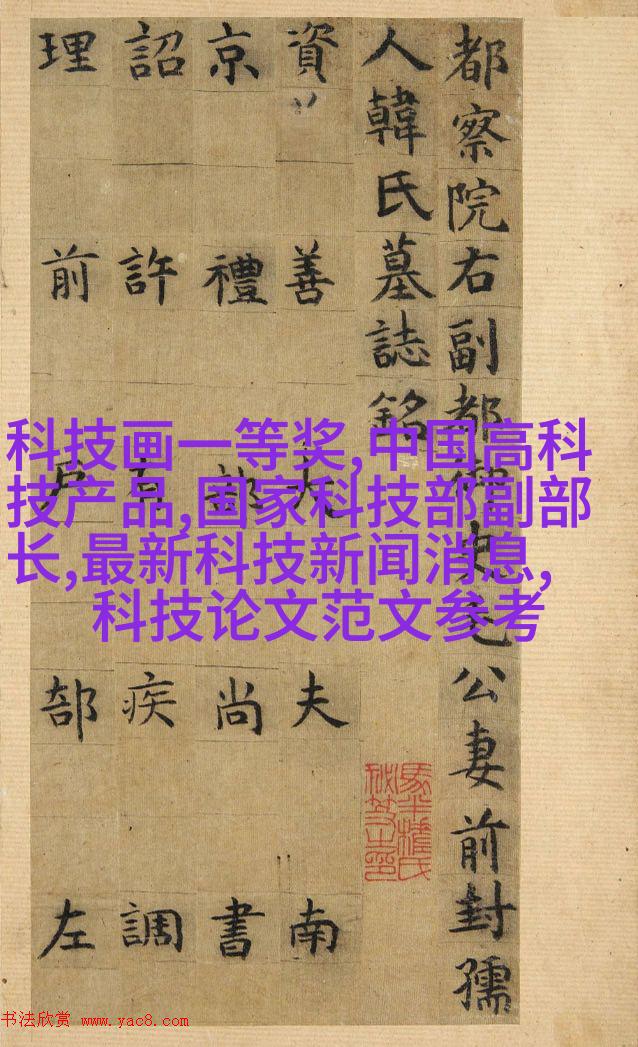 都察院右副都御史毛公妻前封孺
人韓氏墓誌銘
資善大夫南
京禮部尚書
詔許疾調
理前戶部左
科技画一等奖,中国高科
技产品,国家科技部副部
长,最新科技新闻消息,
科技论文范文参考
书法欣赏 www.yac8.com